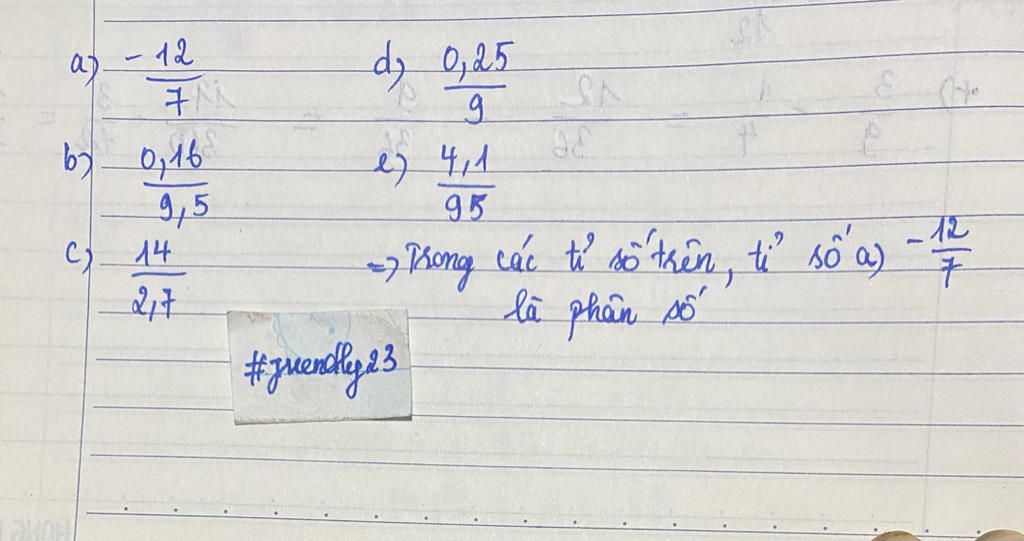 a) -12/7
d) 0,25/9
b) 0,16/9,5
e) 4,1/95
c) 14/2,7
=> Trong các tỉ số trên, tỉ số a) -12/7
là phân số